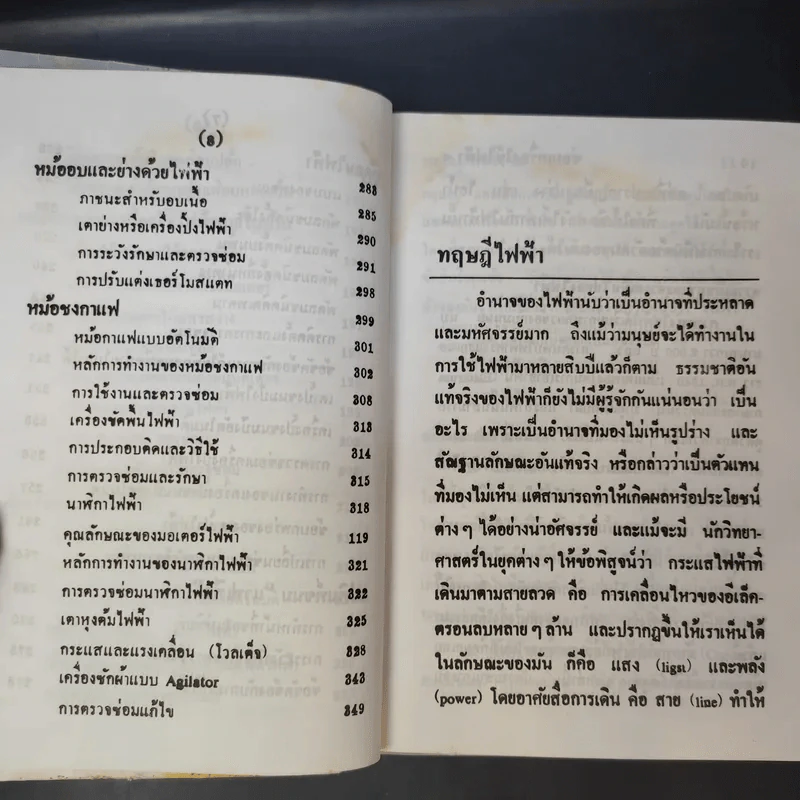 (8)
หม้ออบและย่างด้วยไฟฟ้า
ภาชนะสำหรับอบเนื้อ 283
เตาย่างหรือเครื่องปิ้งไฟฟ้า 285
การระวังรักษาและตรวจซ่อม 290
การปรับแต่งเธอร์โมสแตท 291
หม้อชงกาแฟ 298
หม้อกาแฟแบบอัตโนมัติ 299
หลักการทำงานของหม้อชงกาแฟ 301
การใช้งานและตรวจซ่อม 302
เครื่องขัดพื้นไฟฟ้า 308
การประกอบติดและวิธีใช้ 313
การตรวจซ่อมและรักษา 314
นาฬิกาไฟฟ้า 315
คุณลักษณะของมอเตอร์ไฟฟ้า 318
หลักการทำงานของนาฬิกาไฟฟ้า 119
การตรวจซ่อมนาฬิกาไฟฟ้า 321
เตาหุงต้มไฟฟ้า 322
กระแสและแรงเคลื่อน (โวลเต็จ) 325
เครื่องซักผ้าแบบ Agilator 328
การตรวจซ่อมแก้ไข 343
349
ทฤษฎีไฟฟ้า
อำนาจของไฟฟ้านับว่าเป็นอำนาจที่ประหลาด
และมหัศจรรย์มาก ถึงแม้ว่ามนุษย์จะได้ทำงานใน
การใช้ไฟฟ้ามาหลายสิบปีแล้วก็ตาม ธรรมชาติอัน
แท้จริงของไฟฟ้าก็ยังไม่มีผู้รู้จักกันแน่นอนว่า เป็น
อะไร เพราะเป็นอำนาจที่มองไม่เห็นรูปร่าง และ
สัณฐานลักษณะอันแท้จริง หรือกล่าวว่าเป็นตัวแทน
ที่มองไม่เห็น แต่สามารถทำให้เกิดผลหรือประโยชน์
ต่างๆ ได้อย่างน่าอัศจรรย์ และแม้จะมี นักวิทยา-
ศาสตร์ในยุคต่างๆ ให้ข้อพิสูจน์ว่า กระแสไฟฟ้าที่
เดินมาตามสายลวด คือ การเคลื่อนไหวของอีเล็ค-
ตรอนลบหลายๆ ล้าน และปรากฏขึ้นให้เราเห็นได้
ในลักษณะของมัน ก็คือ แสง (ligst) และพลัง
(power) โดยอาศัยสื่อการเดิน คือ สาย (line) ทำให้